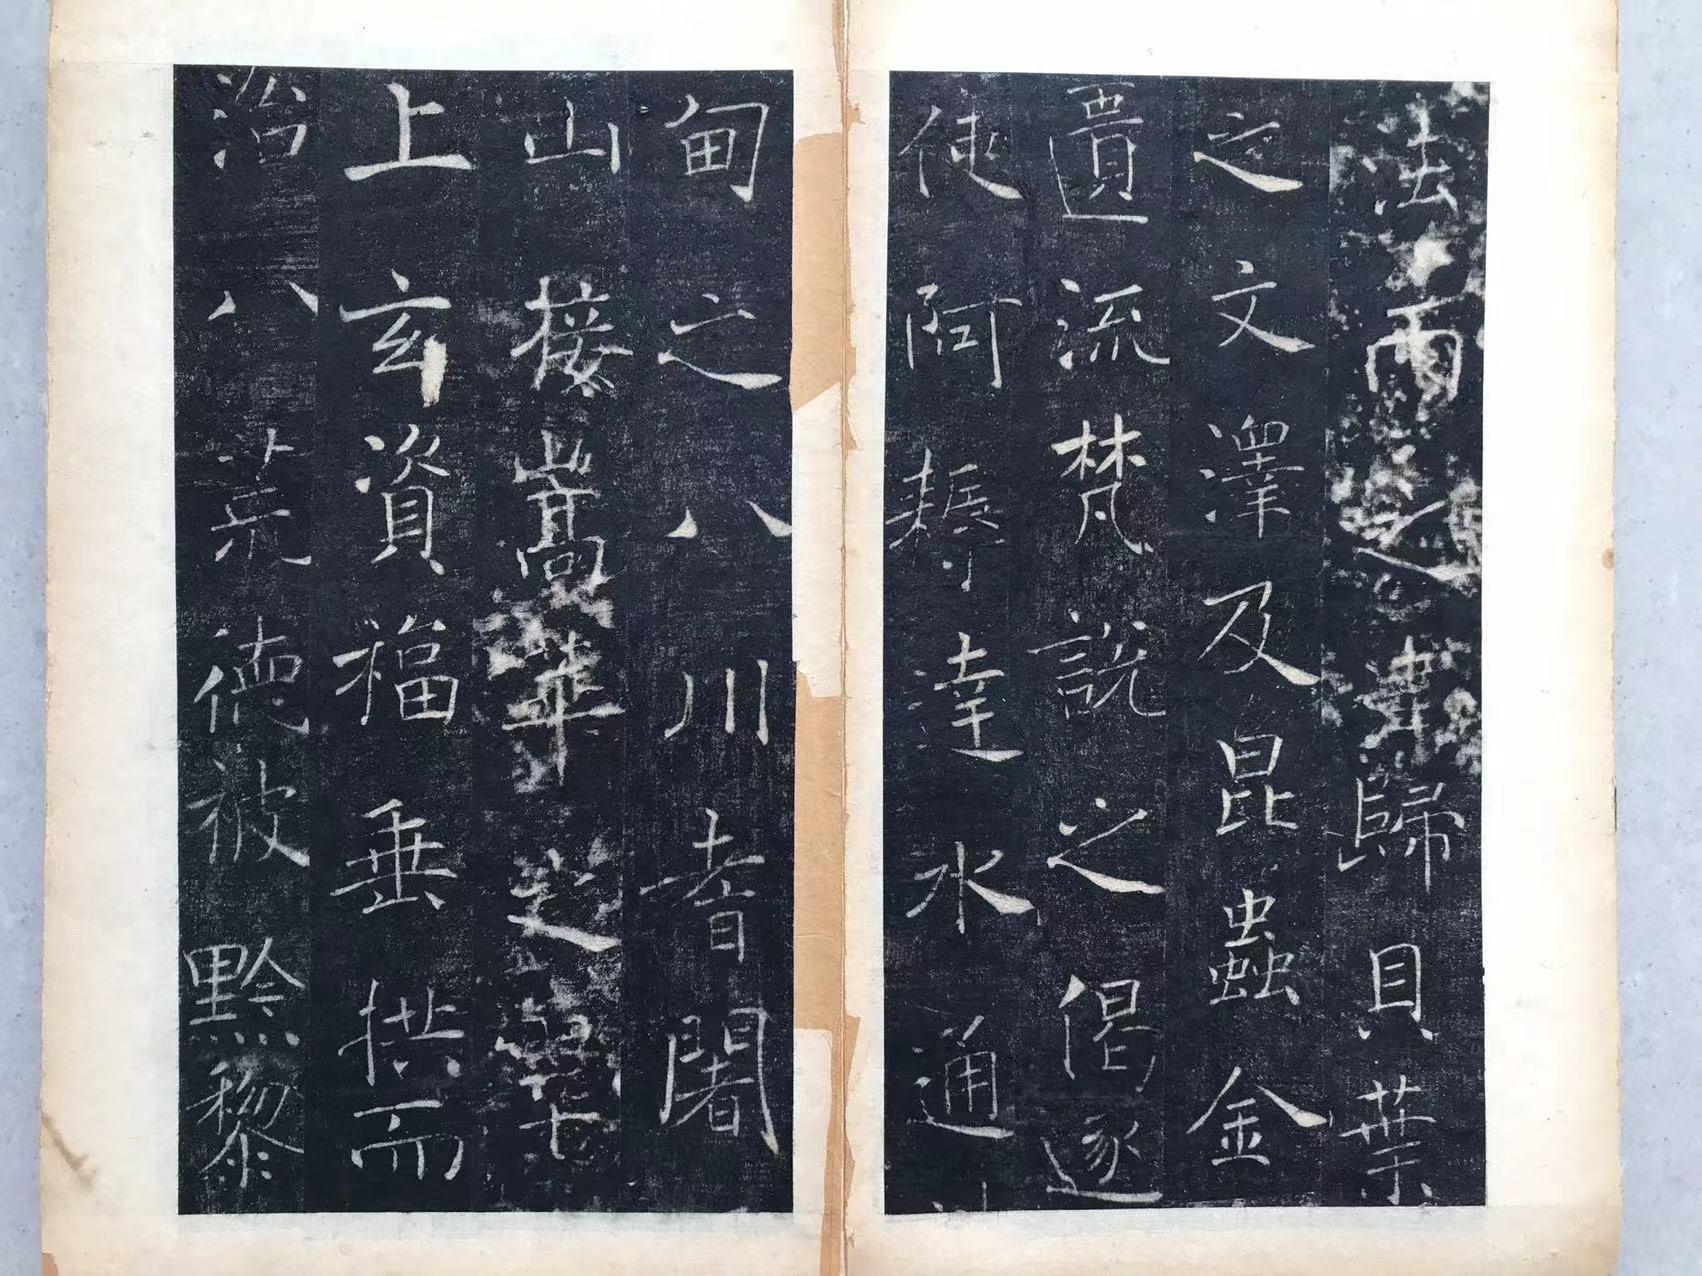 法雨之歸貝葉
之文澤及昆蟲金
匱流梵說之偈遂
使阿耨達水通
甸之八川耆闍
山接嵩華之
上玄資福垂拱而
治八荒德被黔黎